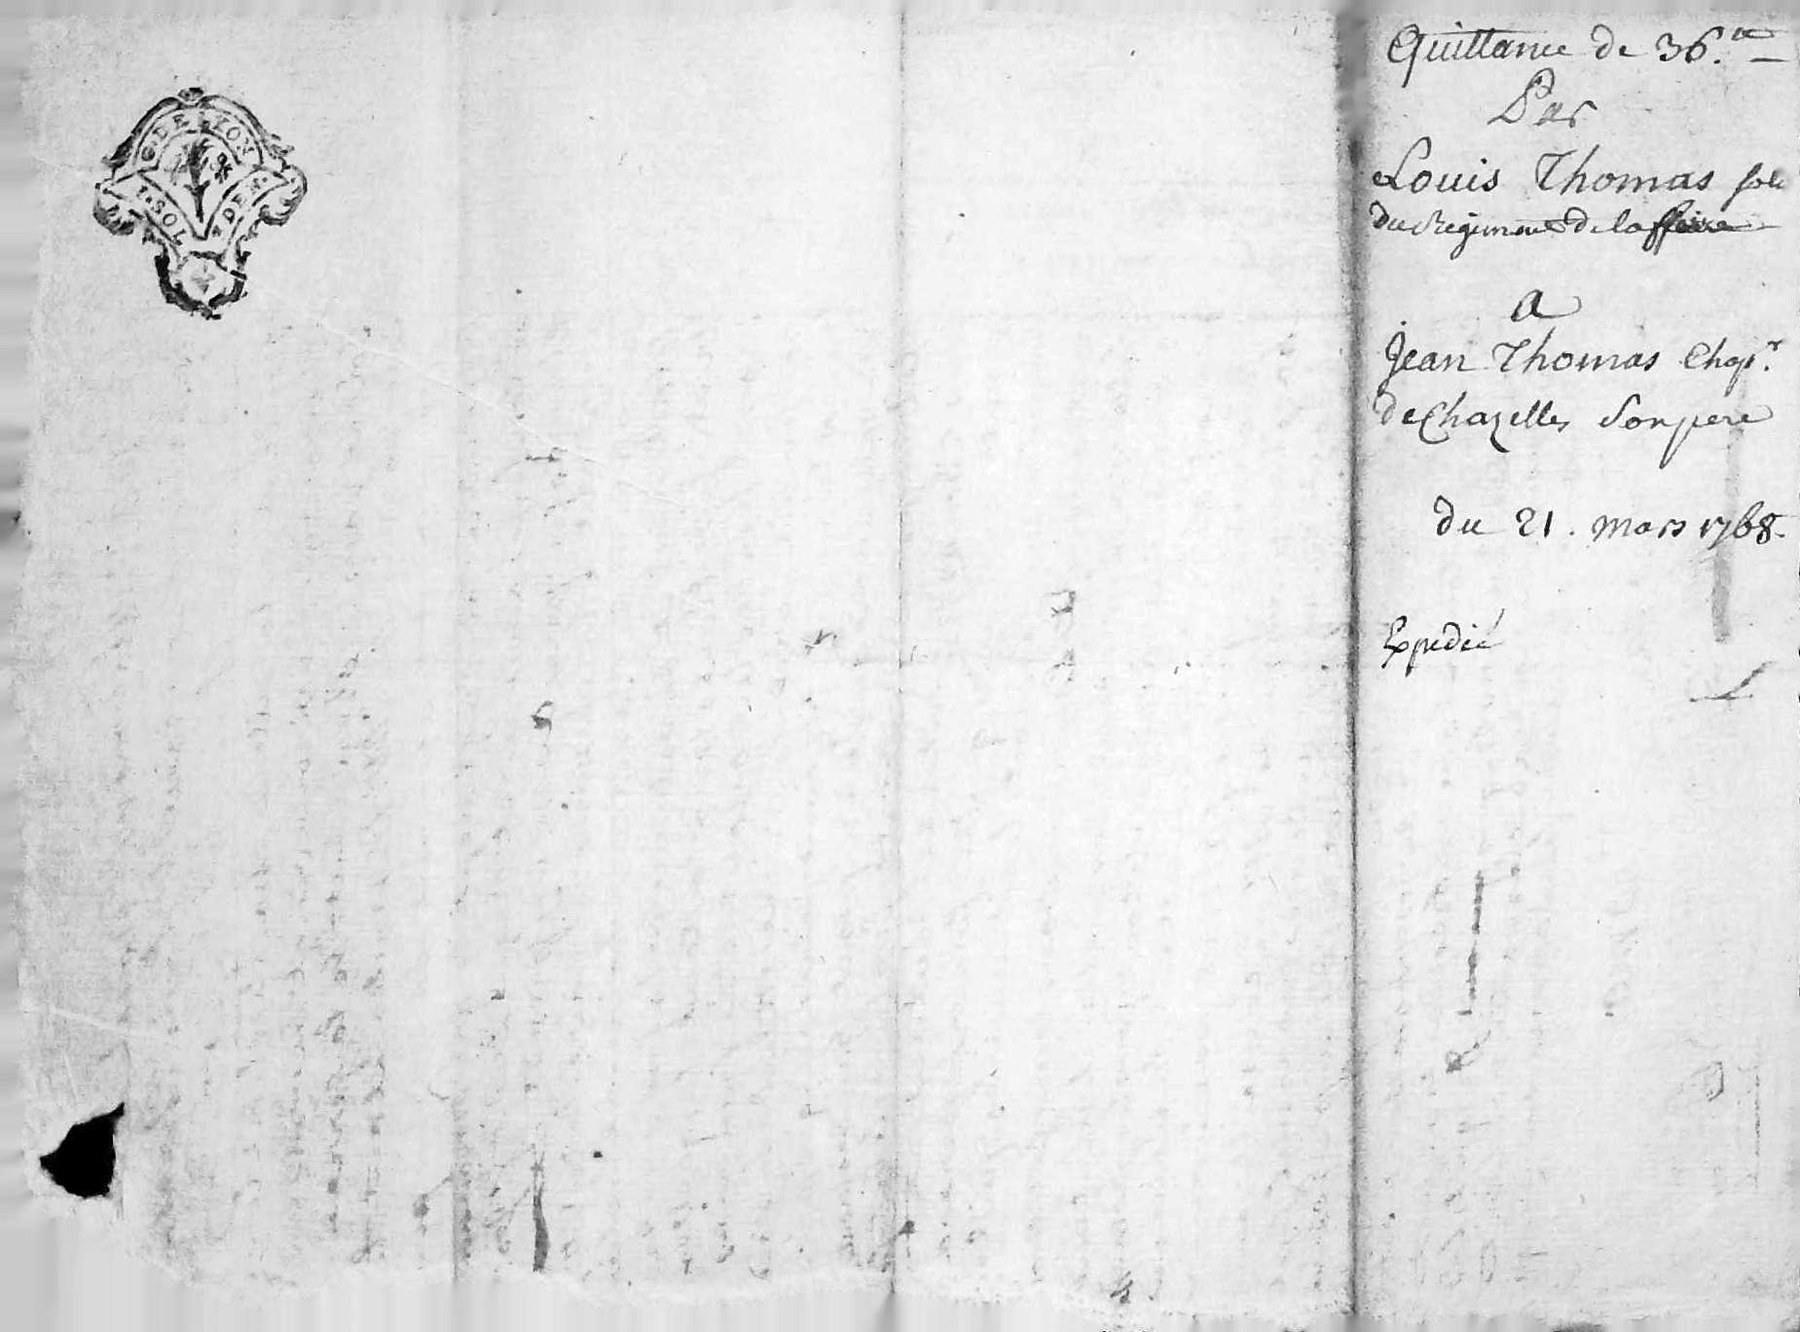 G DE LYON
1. SOL 4 DEN.
Quittance de 36.ᵗᵗ
Par
Louis Thomas sold
du Regiment de laffaire
a
Jean Thomas Chap.ʳ
de Chazelles Son pere
du 21. mars 1768.
Expedié